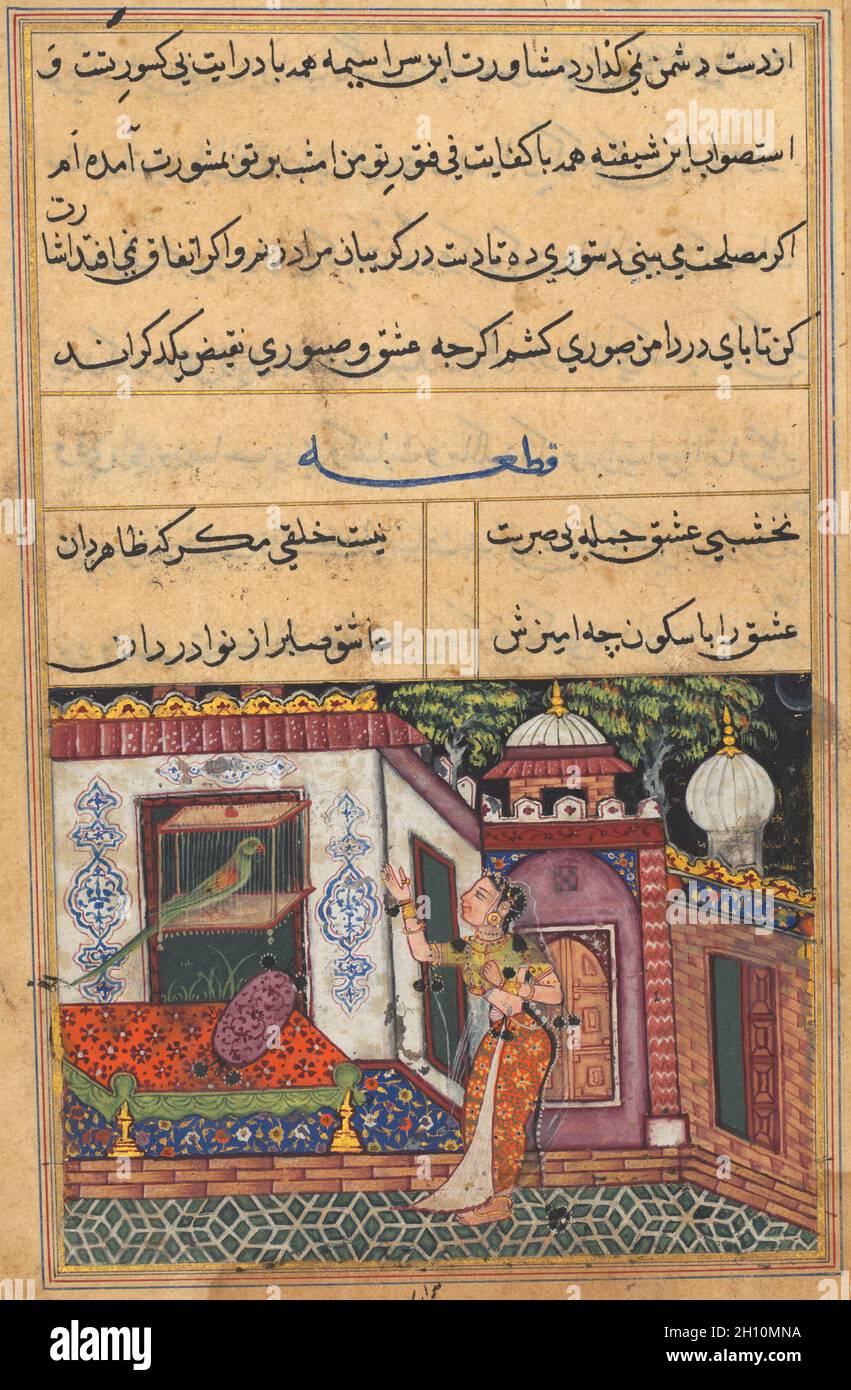 از دست دشمن نمی گذارد مشاورت این سراسیمه همه با درایت بی کسور تست و
استصواب این شیفته همه با کفایت بی فتور تو من امشب بر تو بمشورت آمده ام
رت
اکر مصلحت می بینی دستوری ده تا دست در کریبان مراد زنم و اکر اتفاق نمی افتد اشا
کن تا پای در دامن صبوری کشم اکر چه عشق و صبوری نقیض یکدکراند
قطعه
نخشبی عشق جمله بی صبرست نیست خلقی مکر که ظاهر دان
عشق را با سکون چه امیزش عاشق صابر از نوادر دان
alamy
Image ID: 2H10MNA
www.alamy.com